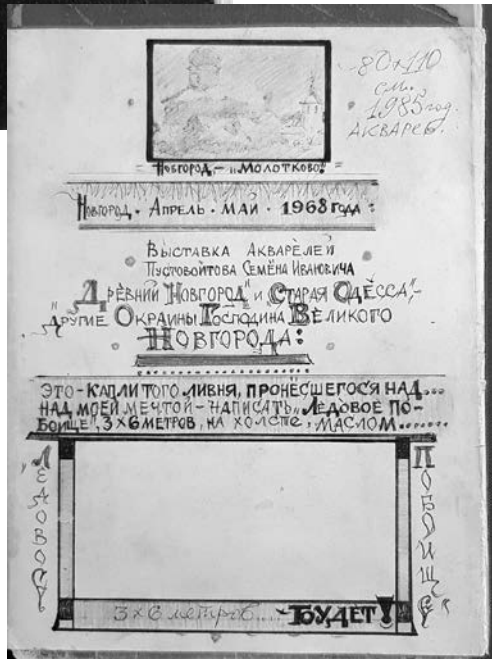 80×110
см.
1985 год.
АКВАРЕЛ.
НОВГОРОД, – „МОЛОТКОВО“
НОВГОРОД • АПРЕЛЬ • МАЙ • 1968 ГОДА:
ВЫСТАВКА АКВАРЕЛЕЙ
ПУСТОВОЙТОВА СЕМЁНА ИВАНОВИЧА
„ДРЕВНИЙ НОВГОРОД“ И „СТАРАЯ ОДЕССА“,–
„ДРУГИЕ ОКРАИНЫ ГОСПОДИНА ВЕЛИКОГО
НОВГОРОДА:
ЭТО – КАПЛИ ТОГО ЛИВНЯ, ПРОНЁСШЕГОСЯ НАД...
НАД МОЕЙ МЕЧТОЙ – НАПИСАТЬ „ЛЕДОВОЕ ПО-
БОИЩЕ“, 3×6 МЕТРОВ, НА ХОЛСТЕ, МАСЛОМ.......
„ЛЕДОВОЕ
ПОБОИЩЕ“
3×6 метров.... – БУДЕТ!